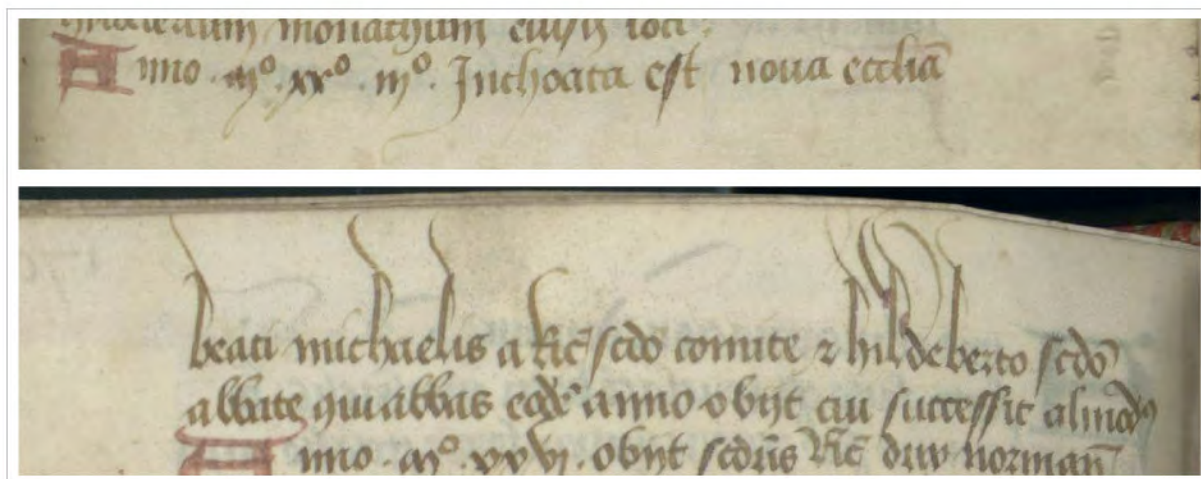 monachum eiusd loci.
Anno . mo . xxo . iijo . Inchoata est noua ecclia
beati michaelis a Ric scdo comite & hildeberto scdo
abbate qui abbas eode anno obijt cui successit almodus
Anno . mo . xxvj . obijt scdus Ric dux norman